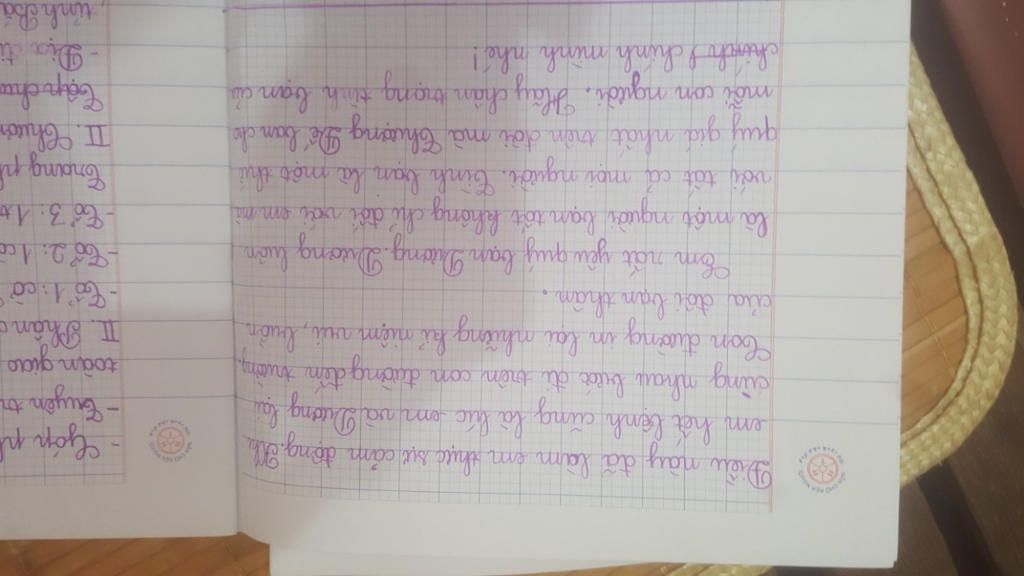 Điều này đã làm em thực sự cảm động. Khi
em hết bệnh cũng là lúc em và Dương lại
cùng nhau bước đi trên con đường đến trường,
Con đường in lại những kỉ niệm vui, buồn
của đôi bạn thân.
Em rất yêu quý bạn Dương. Dương luôn
là một người bạn tốt không chỉ đối với em mà
với tất cả mọi người. Tình bạn là một thứ
quý giá nhất trên đời mà Thượng Đế ban cho
mỗi con người. Hãy trân trọng tình bạn của
chính mình nhé!
- Góp ph
- Tuyên tr
toàn giao
II. Phần
- Tổ 1: cô
- Tổ 2: 1 cô
- Tổ 3: 1
Trang ph
II. Chươn
- Địa đi